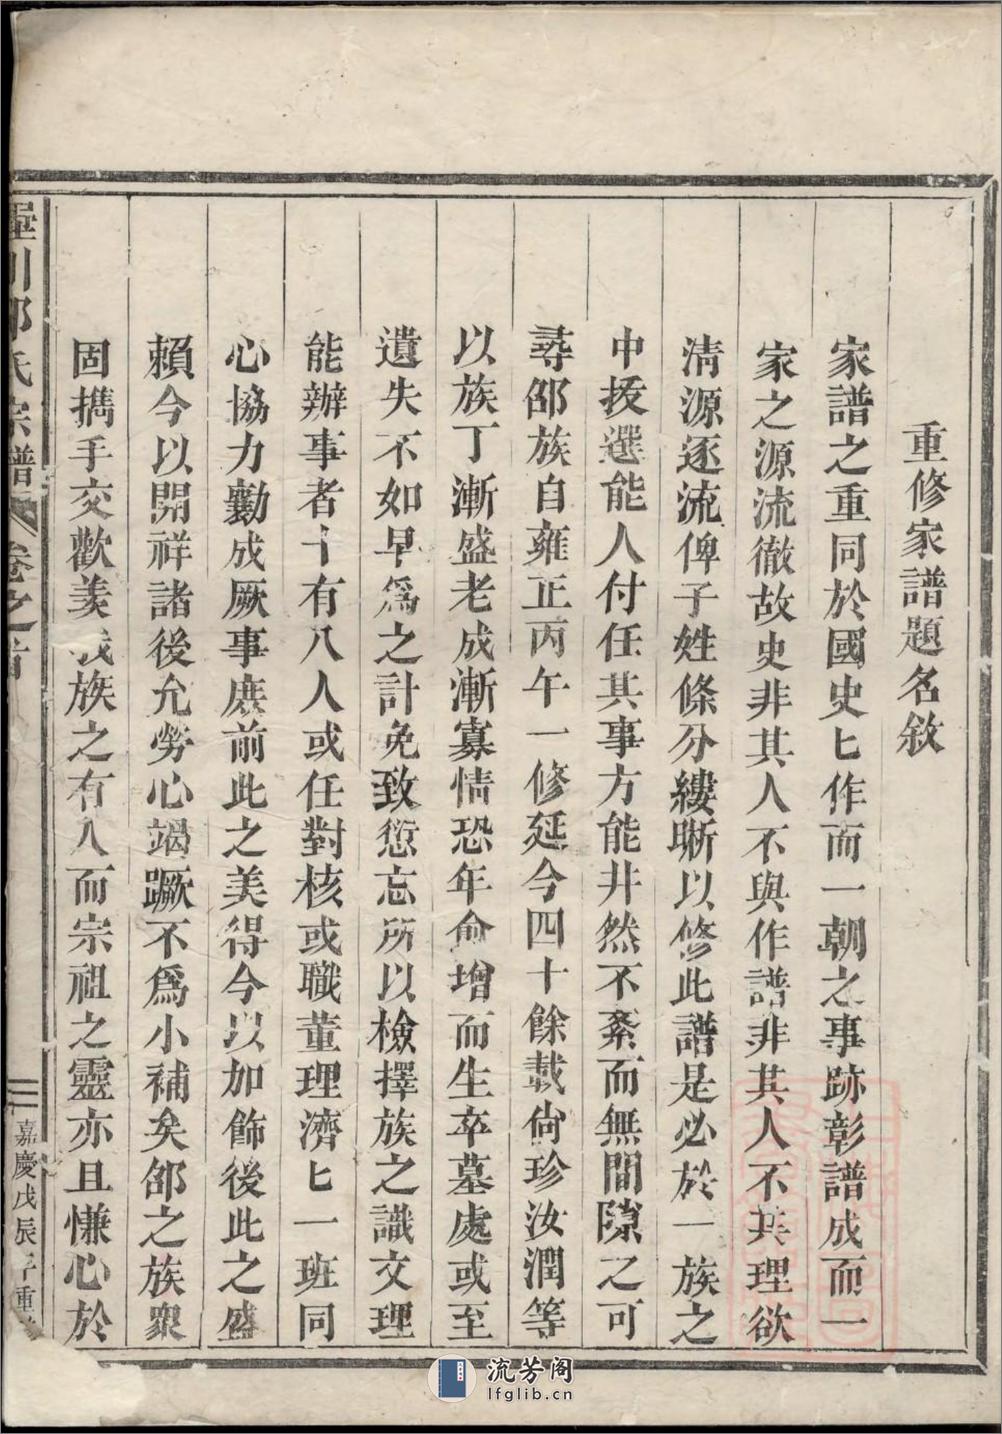 重修家譜題名敘
家譜之重同於國史匕作而一朝之事跡彰譜成而一
家之源流徹故史非其人不與作譜非其人不其理欲
清源逐流俾子姓條分縷晰以修此譜是必於一族之
中拔選能人付任其事方能井然不紊而無間隙之可
尋邵族自雍正丙午一修延今四十餘載尙珍汝潤等
以族丁漸盛老成漸寡情恐年侖增而生卒墓處或至
遺失不如早爲之計免致愆忘所以檢擇族之識文理
能辦事者十有八人或任對核或職董理濟匕一班同
心協力勷成厥事庶前此之美得今以加飾後此之盛
賴今以開祥諸後允勞心竭蹶不爲小補矣邵之族衆
固擕手交歡羡族之有人而宗祖之靈亦且慊心於
川邵氏宗譜 卷之首
二 嘉慶戊辰年重
流芳阁
lfglib.cn